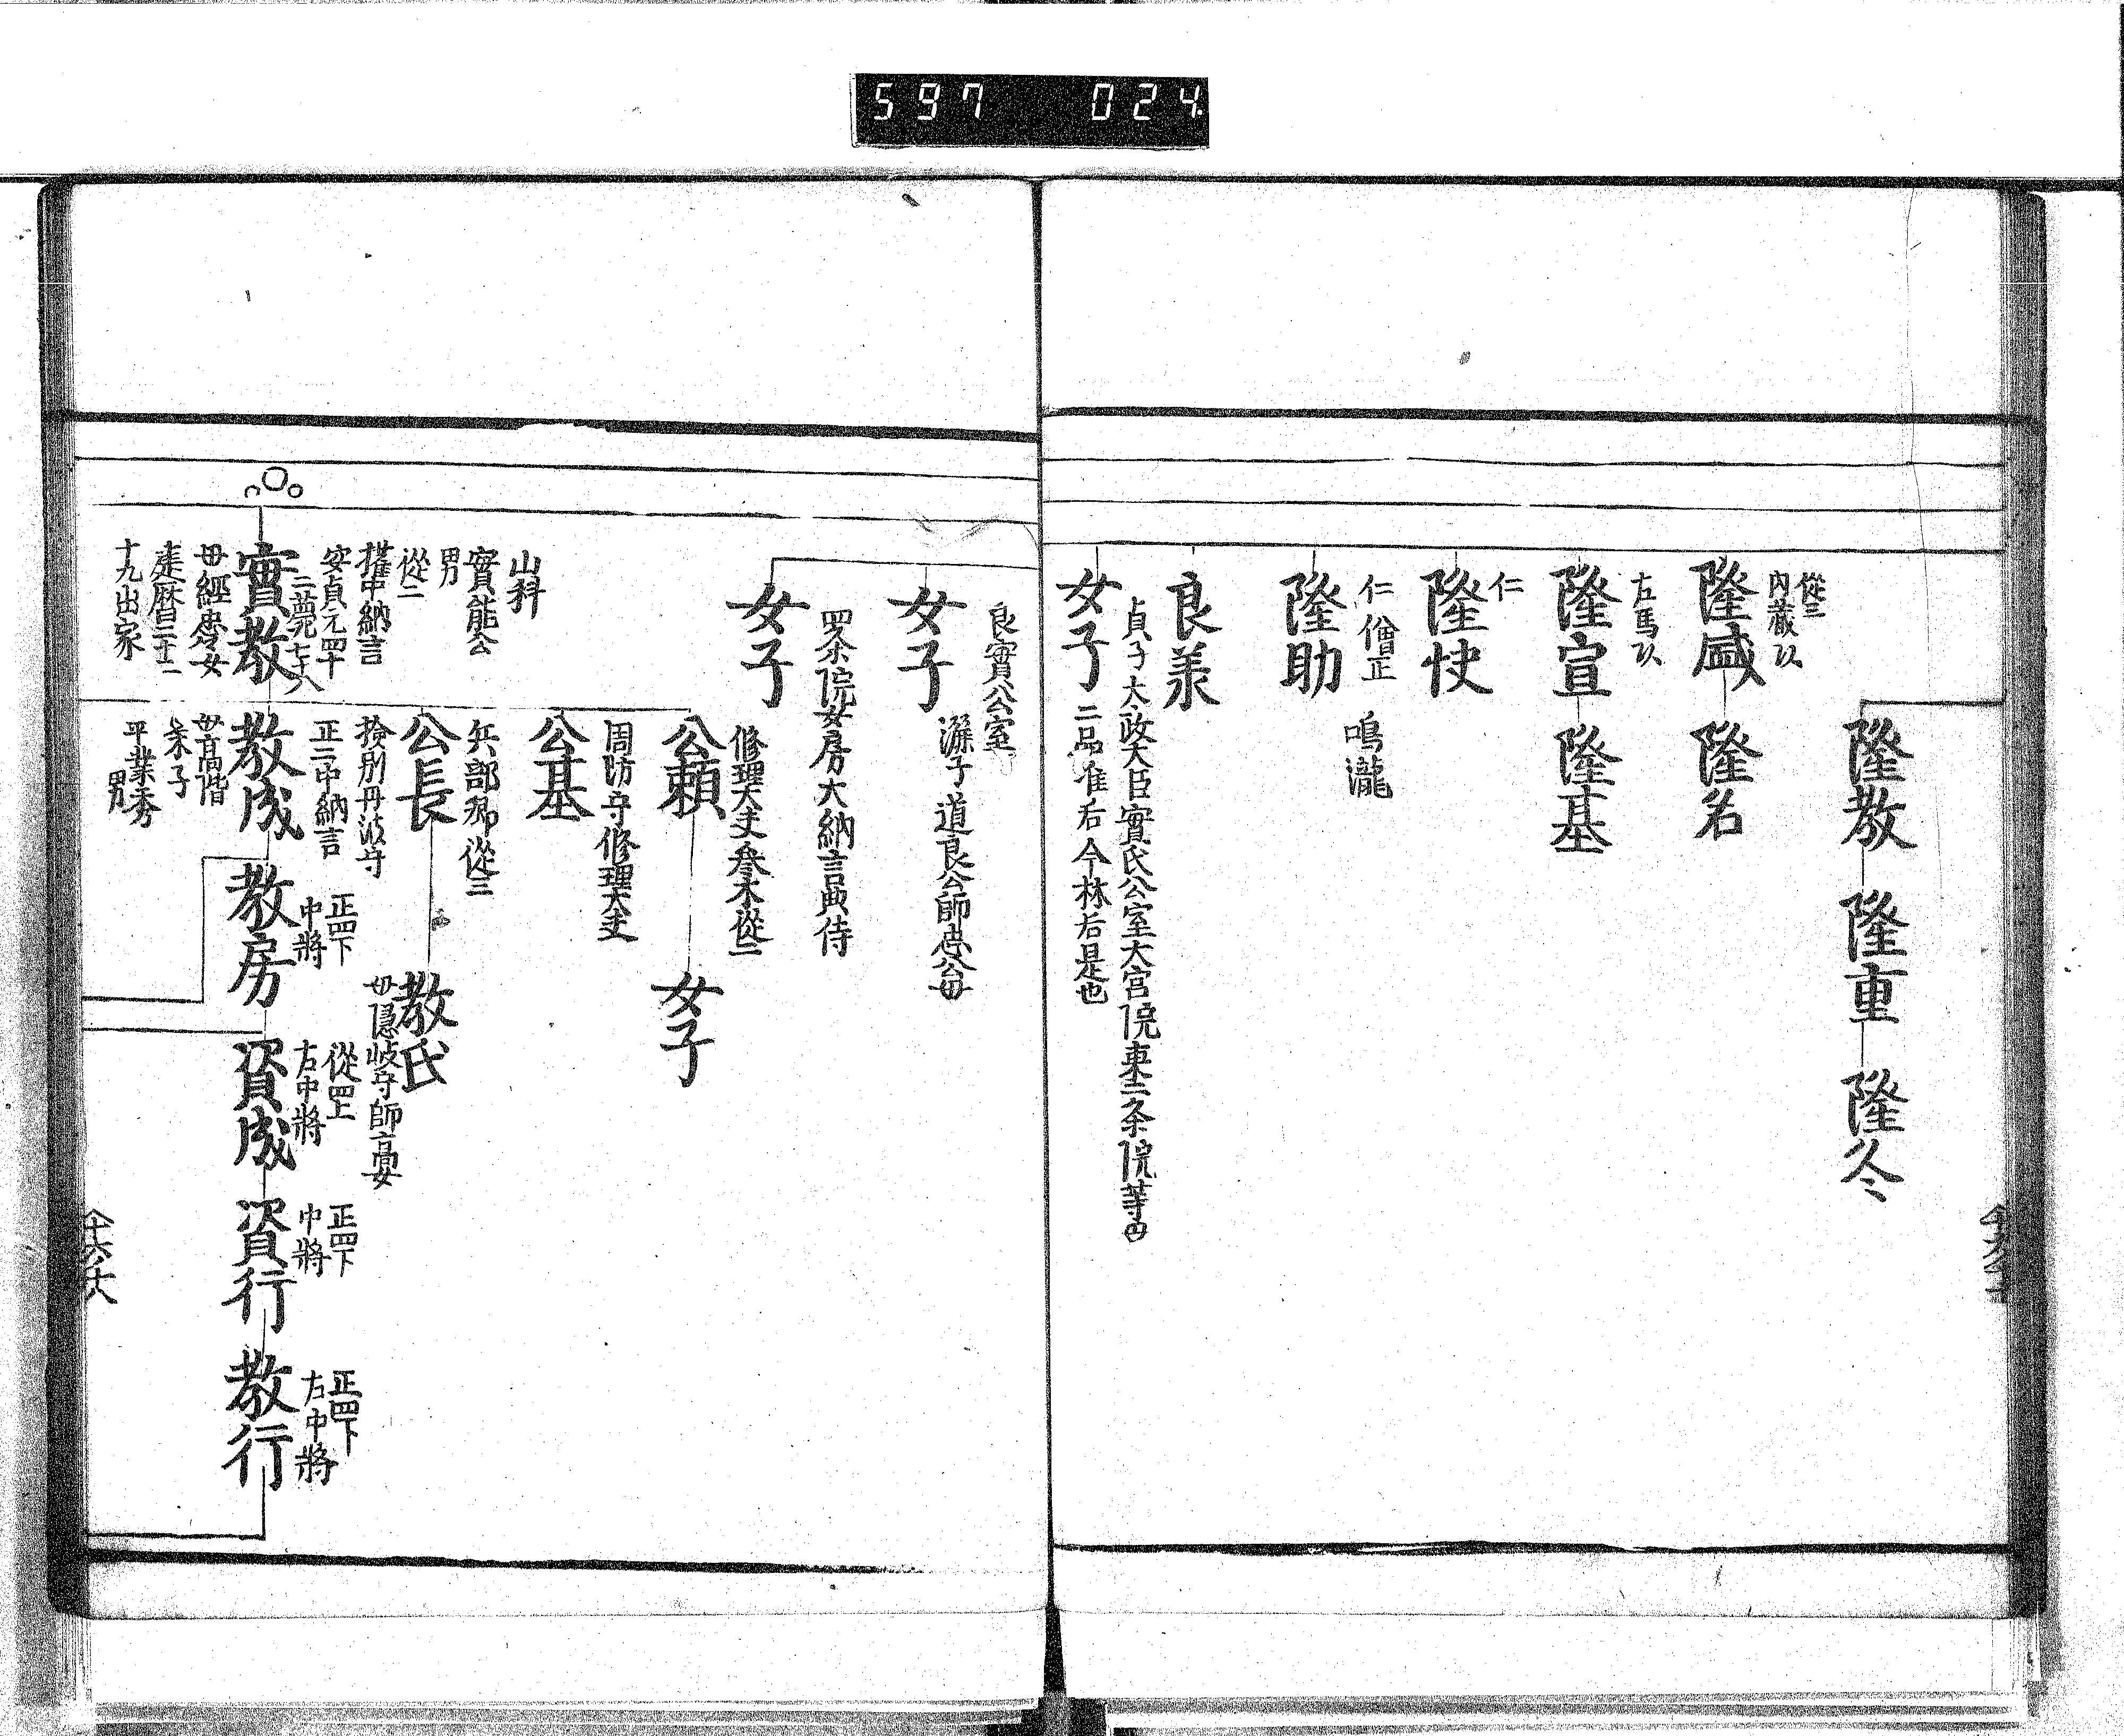 597 024
隆教
隆重
隆冬
從三
內藏
隆盛
隆名
左馬
隆宣
隆基
仁
隆
仁僧正
鳴瀧
隆助
良
貞子太政大臣實氏公室大宮院東二条院等母
女子
二品准后今林后是也
良實公室
女子
子道良公師忠公母
女子
四条院女房大納言典侍
修理大夫參木從二
公頼
女子
周防守修理大夫
公基
兵部卿從三
公長
教氏
山科
實能公
男
從二
權中納言
安貞元四十
二薨七十八
實教
母經忠女
建曆二十二
十九出家
丹波守
正二中納言
教成
母高階
朱子
平業秀
男
正四下
中將
教房
母隱岐守師高女
從四上
右中將
資成
正四下
中將
資行
正四下
右中將
教行